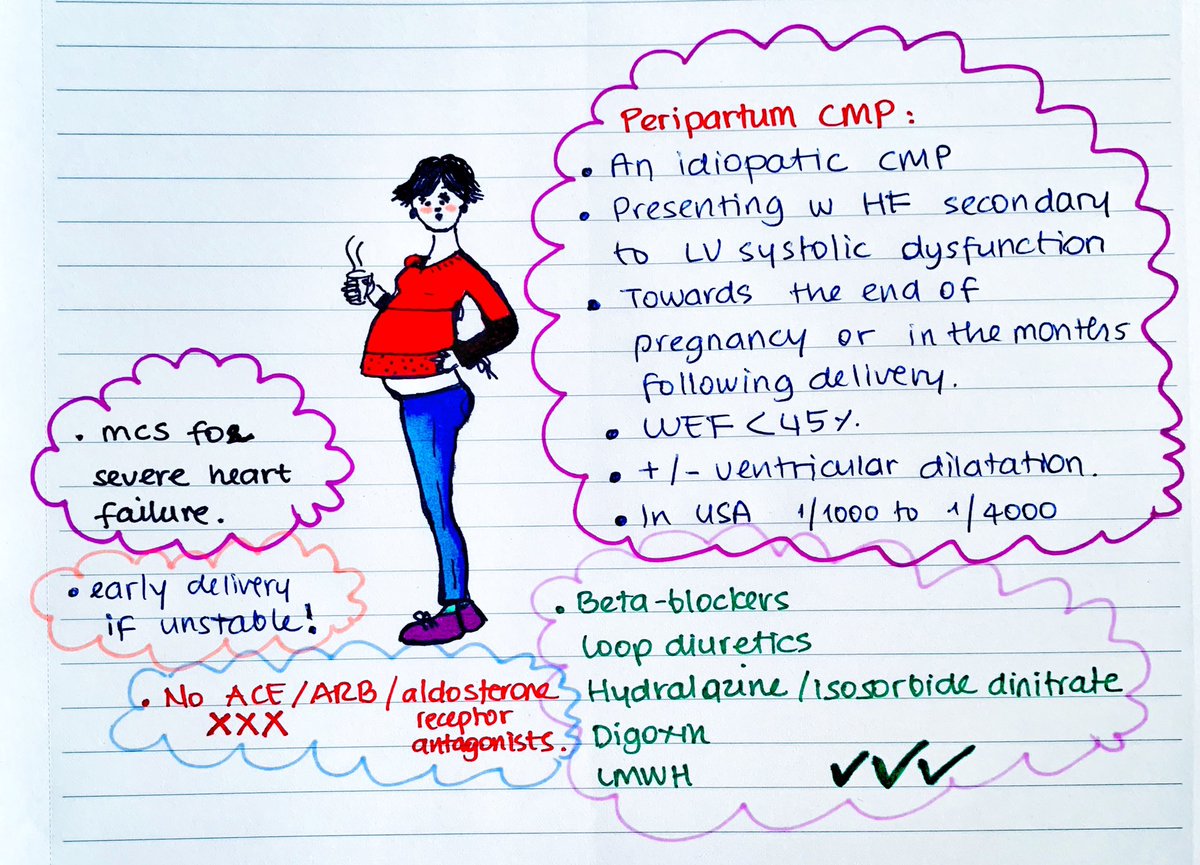 Peripartum CMP:
• An idiopatic CMP
• Presenting w HF secondary
to LV systolic dysfunction
• Towards the end of
pregnancy or in the months
following delivery.
• LVEF < 45%.
• +/- ventricular dilatation.
• In USA 1/1000 to 1/4000
• mcs for
severe heart
failure.
• early delivery
if unstable!
• No ACE/ARB/aldosterone
XXX receptor
antagonists.
• Beta-blockers
Loop diuretics
Hydralazine/isosorbide dinitrate
Digoxin
LMWH ✓✓✓